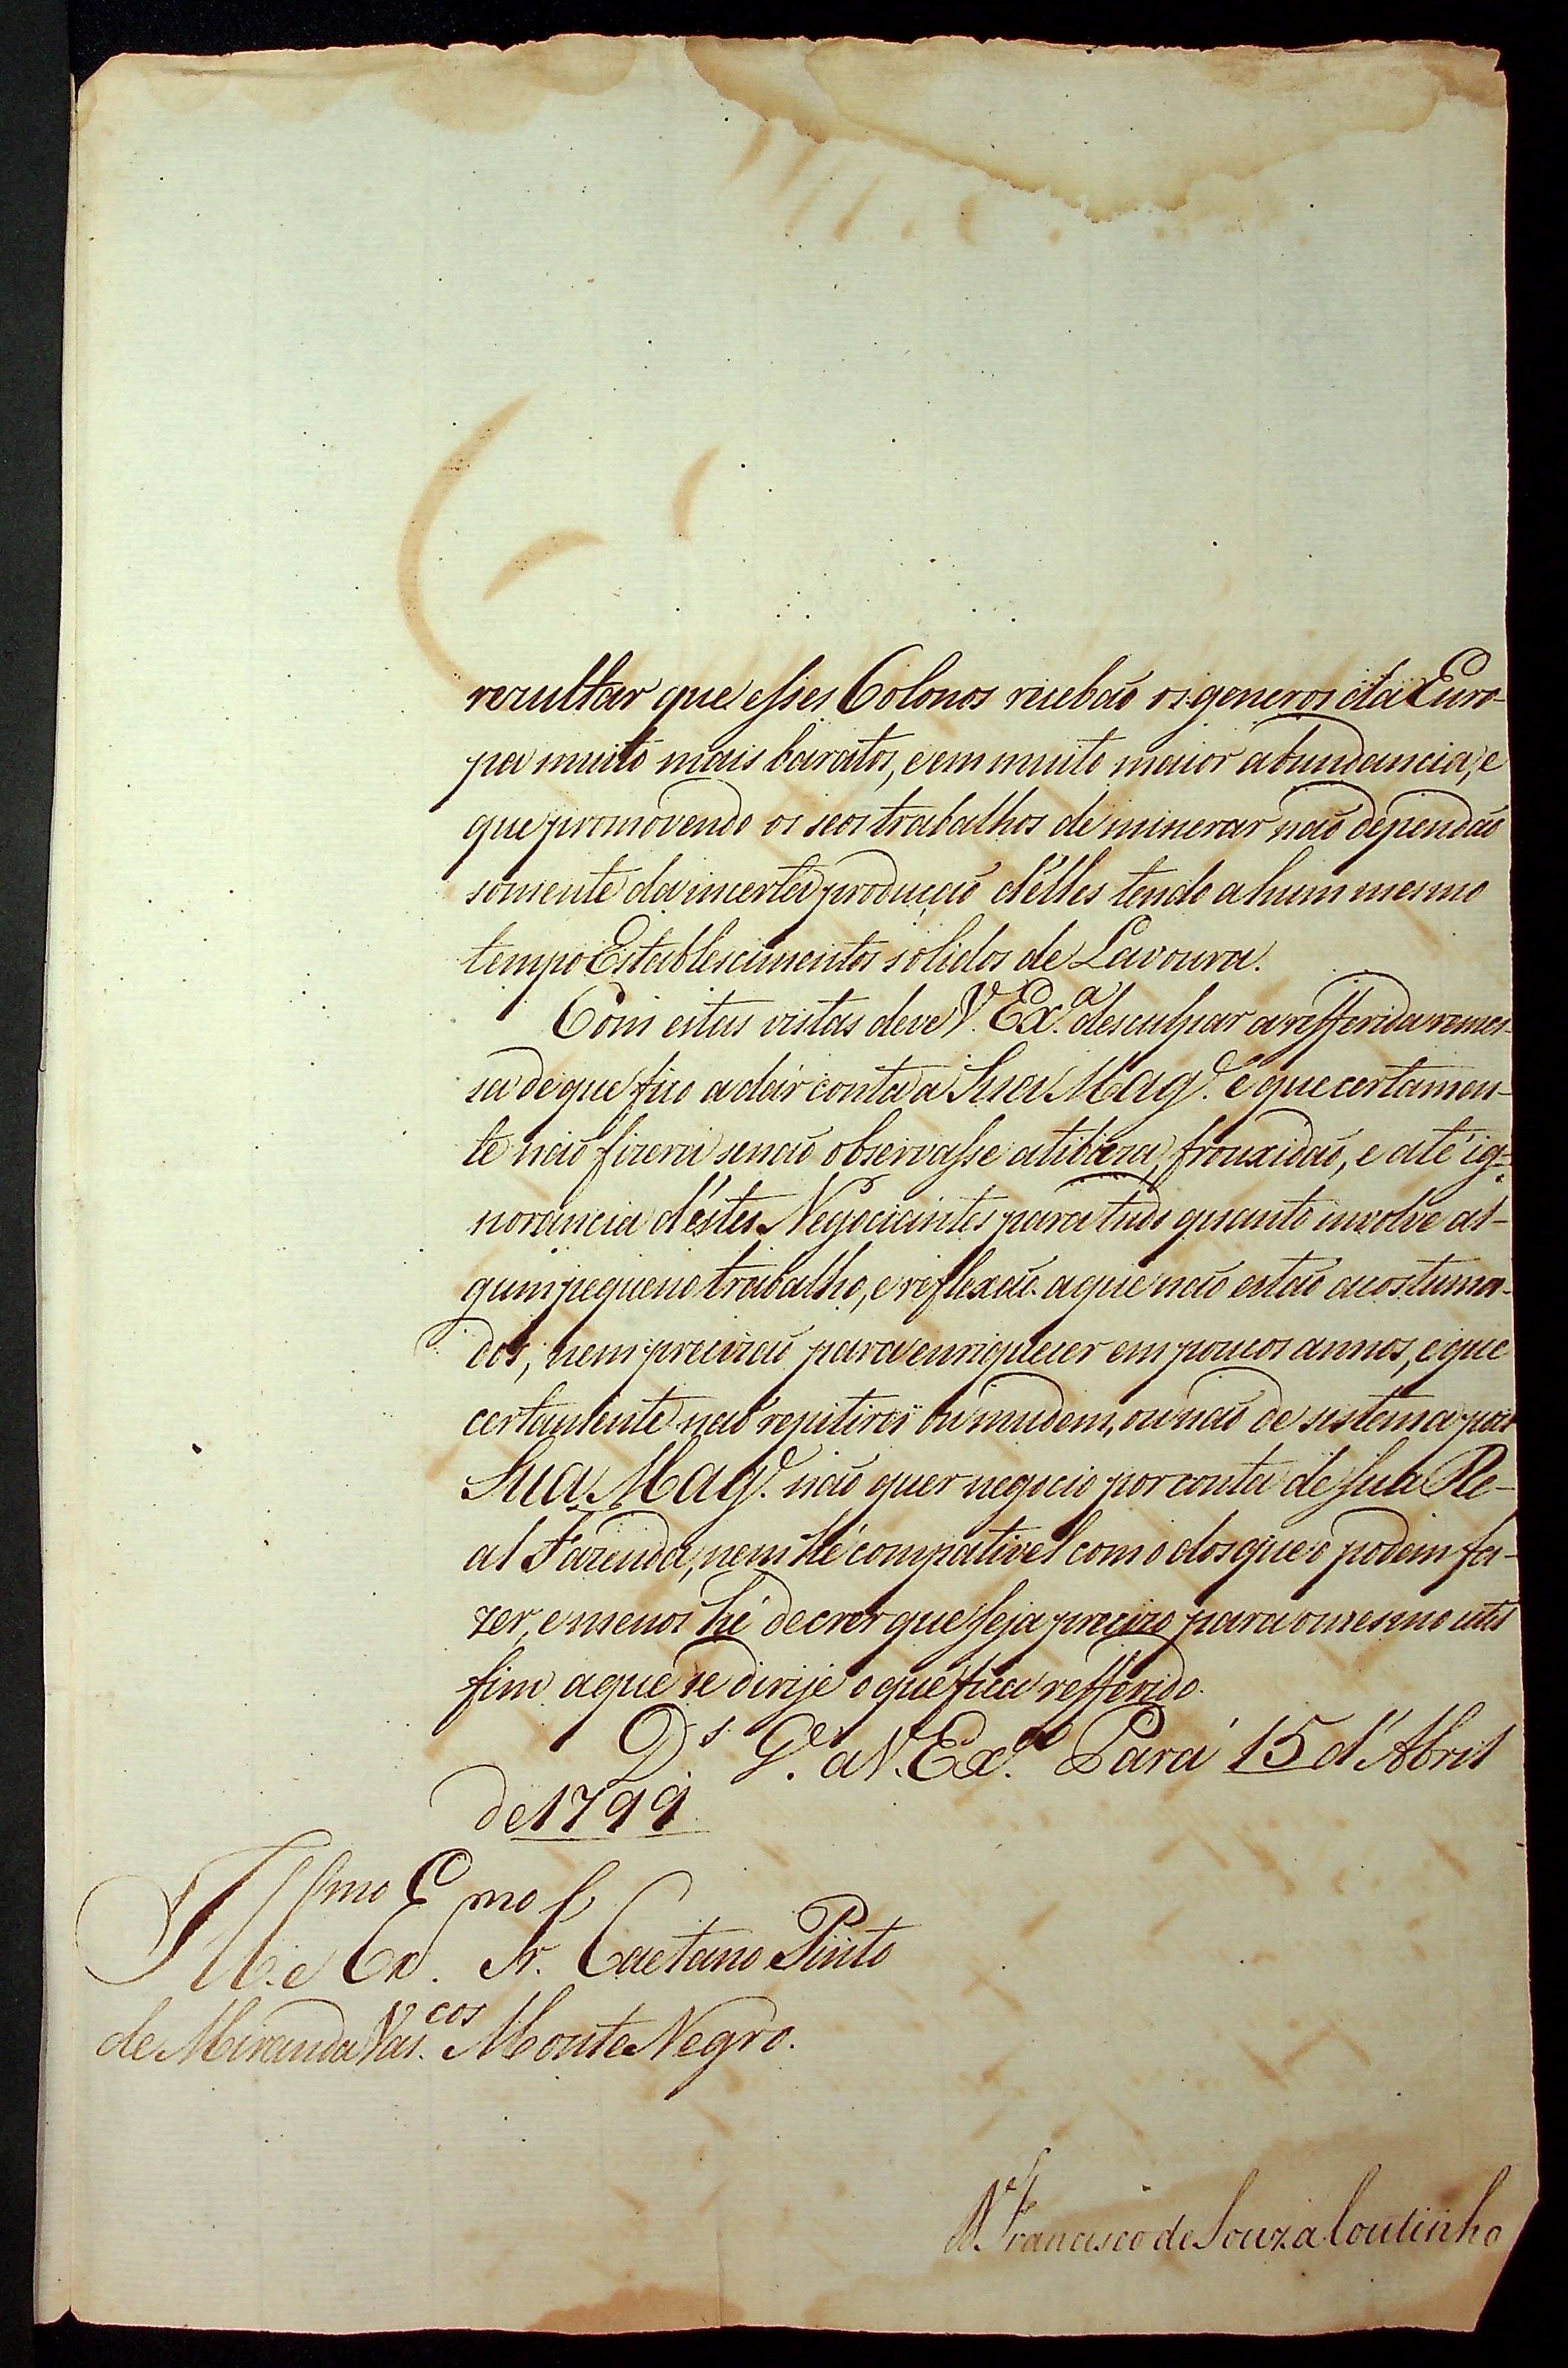 rezultar que esses Colonos recebaõ os generos da Euro-
pa muito mais baratos, e em muito maior abundancia, e
que promovendo os seos trabalhos de minerar naõ dependaõ
somente da incerta producçaõ d'elles tendo a hum mesmo
tempo Establescimentos solidos de Lavoura.
Com estas vistas deve V. Ex.ª desculpar a refferida remes-
sa de que fico a dár conta a Sua Mag.e e que certamen-
te naõ fizera senaõ observasse a tibieza, frouxidaõ, e até ig-
norancia d'estes Negociantes para tudo quanto involve al-
gum pequeno trabalho, e reflexaõ a que naõ estaõ acostuma-
dos, nem precizaõ para enriquecer em poucos annos, e que
certamente naõ repitirei ou mudem, ou naõ de sistema pois
Sua Mag.e naõ quer negocio por conta de sua Re-
al Fazenda, nem hé compativel com o dos que o podem fa-
zer, e menos hé de crer que seja precizo para o mesmo util
fim a que se dirije o que fica refferido.
D.s G.e a V. Ex.ª Pará 15 d'Abril
de 1799.
Ill.mo e Ex.mo Sr. Caetano Pinto
de Miranda Vas.cos Monte Negro.
Francisco de Souza Coutinho